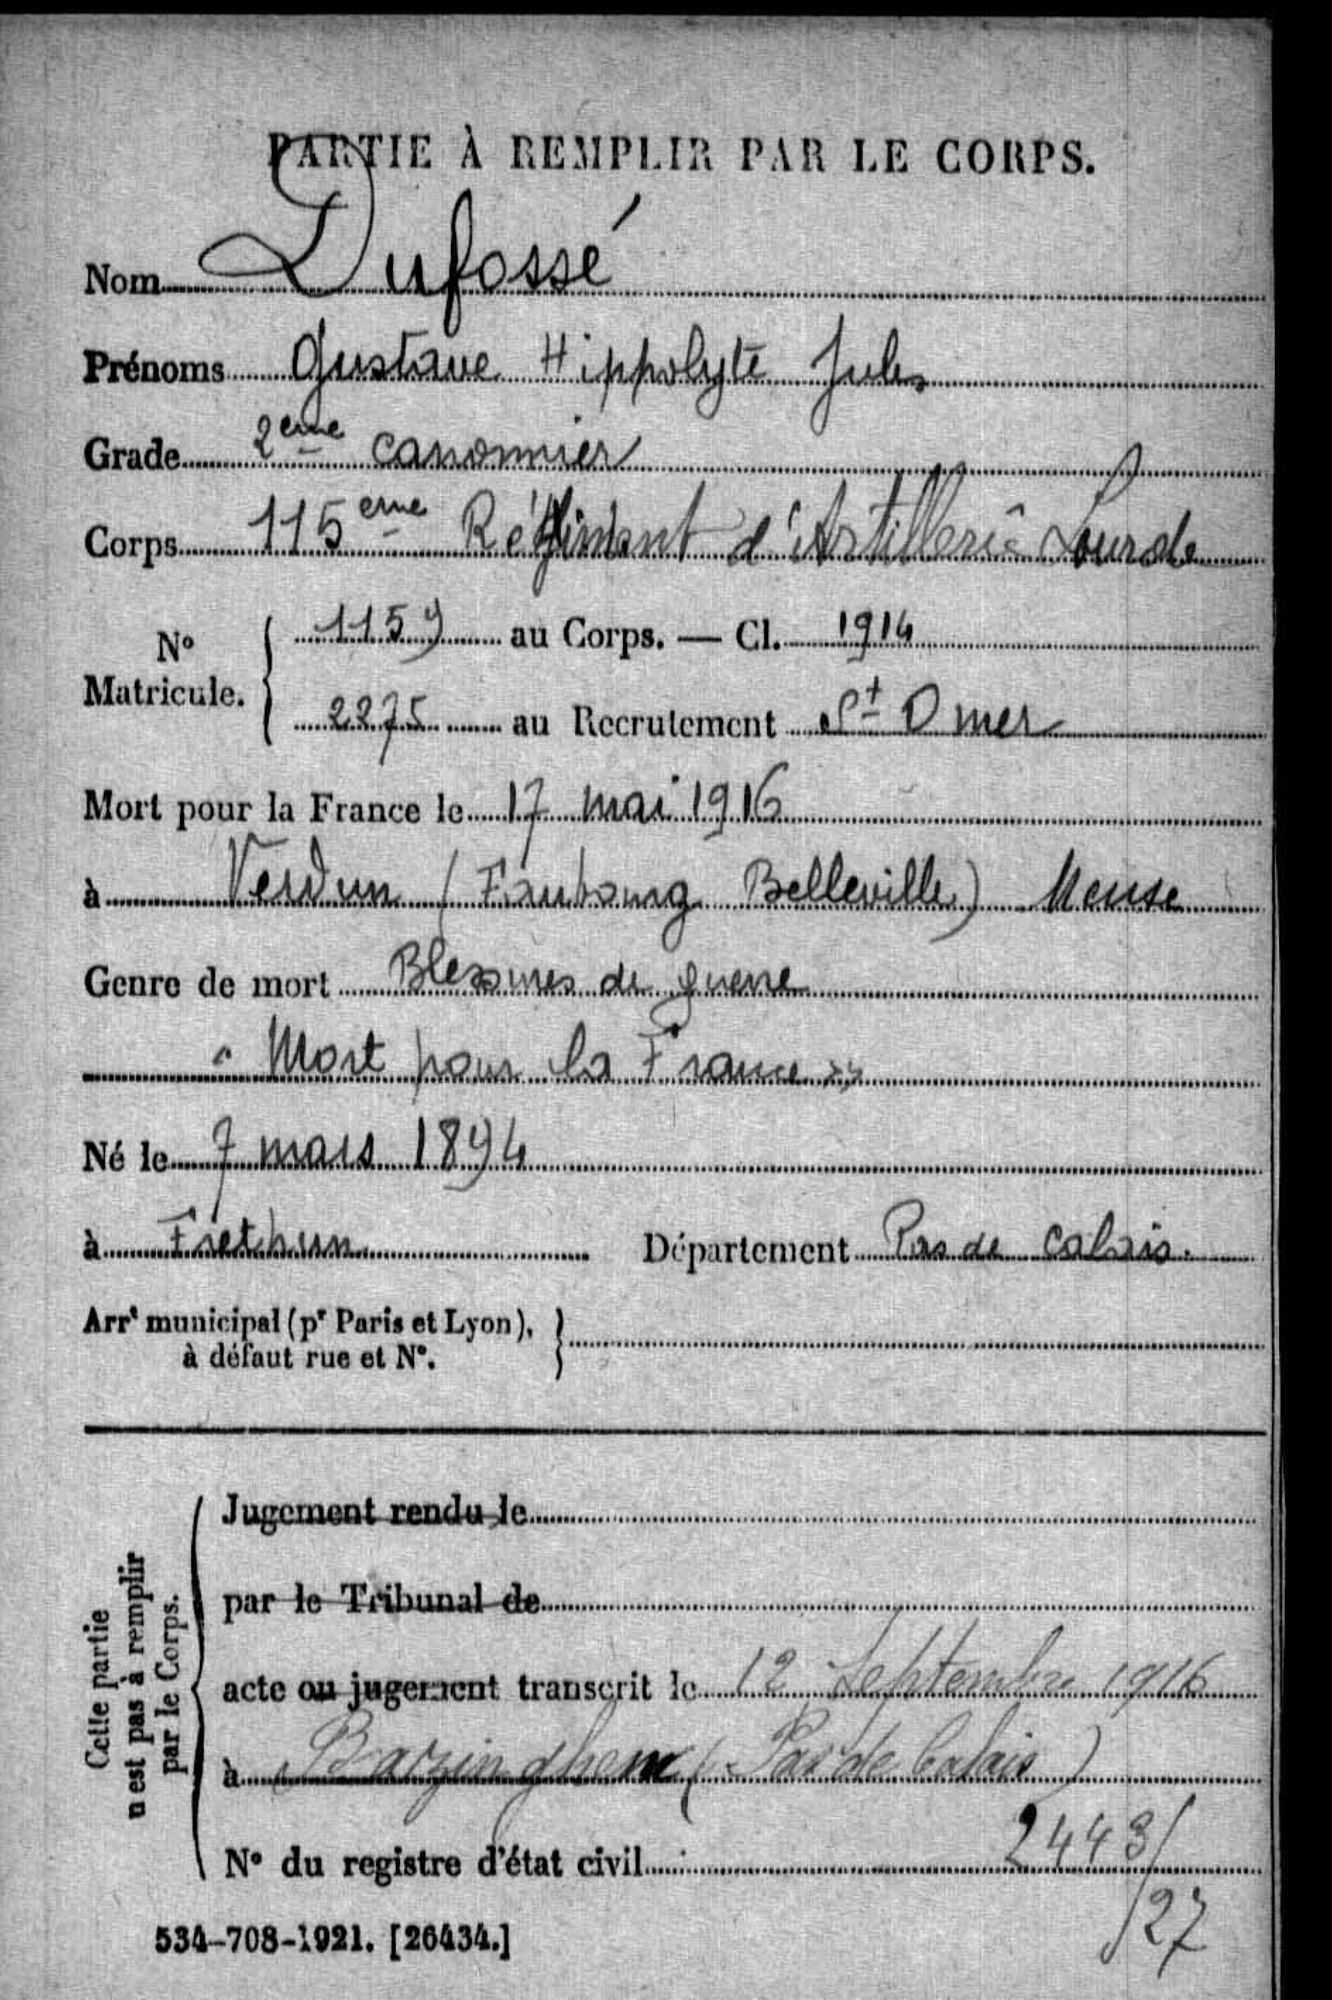 PARTIE À REMPLIR PAR LE CORPS.
Nom Dufossé
Prénoms Gustave Hippolyte Jules
Grade 2eme canonnier
Corps 115eme Régiment d'Artillerie Lourde
N° Matricule. 1159 au Corps. — Cl. 1914
2275 au Recrutement St Omer
Mort pour la France le 17 mai 1916
à Verdun (Faubourg Belleville) Meuse
Genre de mort Blessures de guerre
« Mort pour la France »
Né le 7 mars 1894
à Frethun Département Pas de Calais.
Arrt municipal (pr Paris et Lyon),
à défaut rue et N°.
Cette partie
n'est pas à remplir
par le Corps.
Jugement rendu le
par le Tribunal de
acte ou jugement transcrit le 12 Septembre 1916
à Bazinghem (Pas de Calais)
N° du registre d'état civil
2443/
/27
534-708-1921. [26434.]